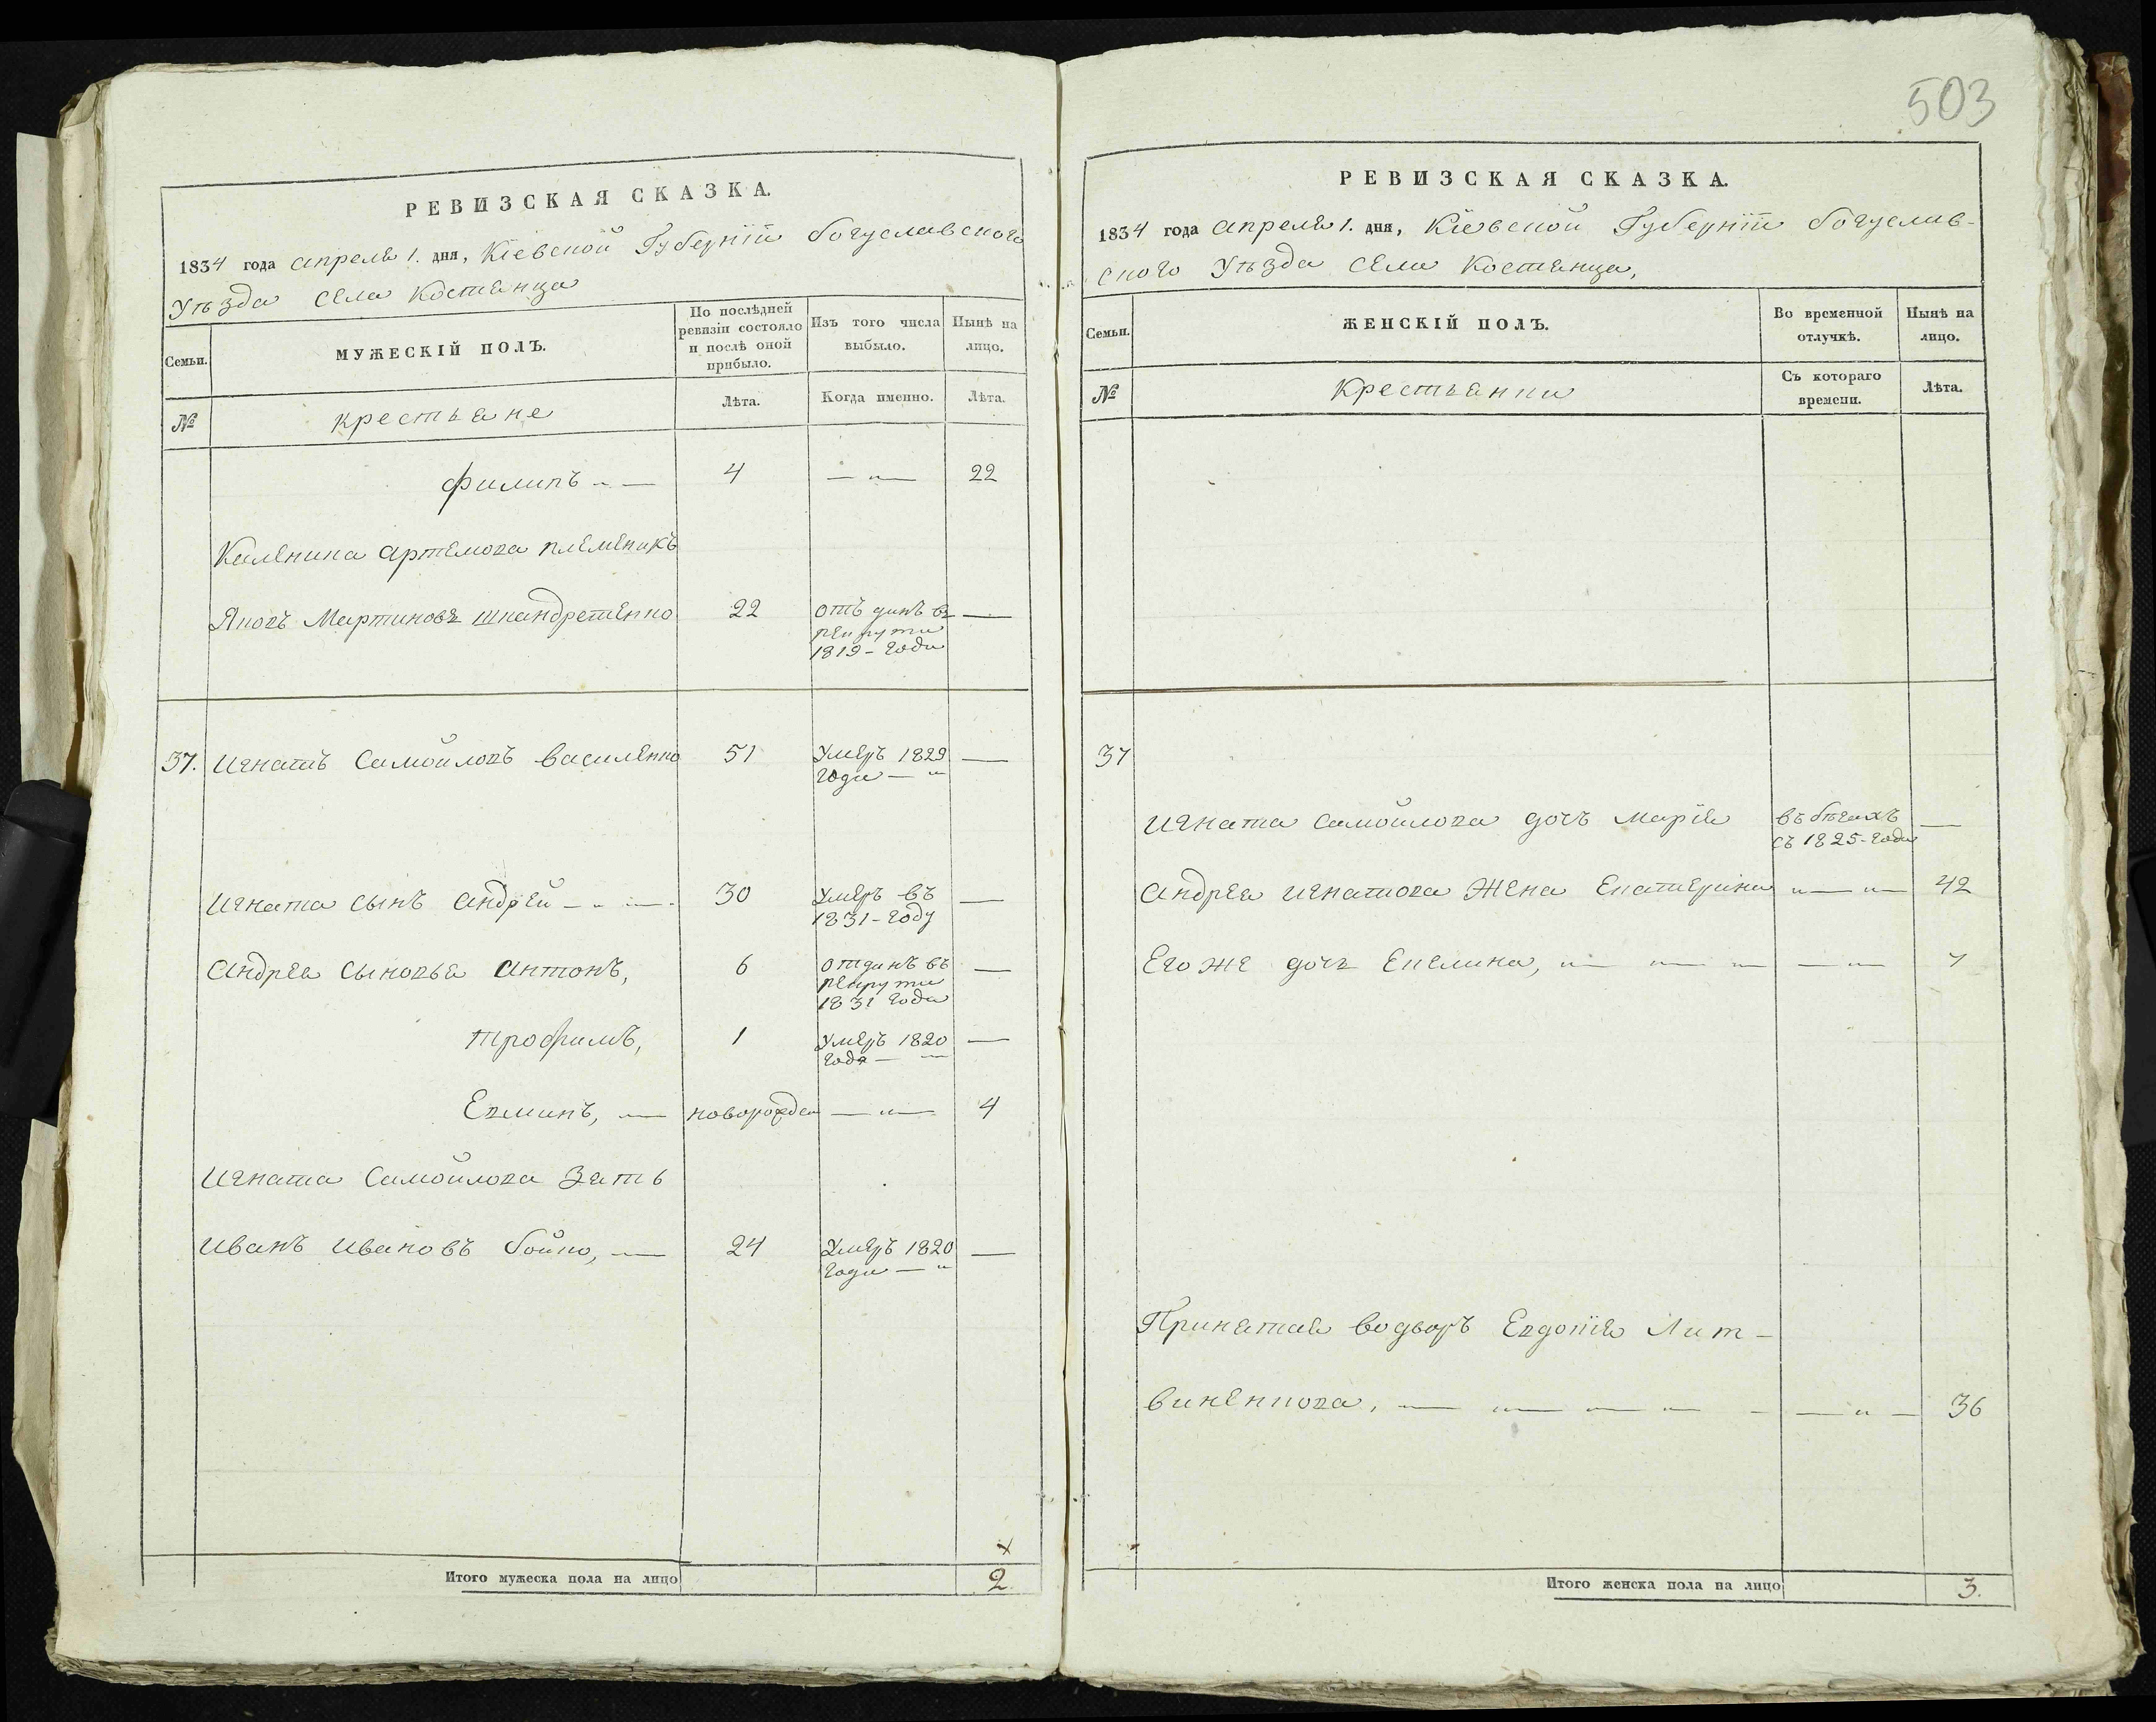 503
РЕВИЗСКАЯ СКАЗКА.
1834 года апреля 1. дня, Кіевской Губерніи богуславского
Уѣзда села Костянца
Семьи.
МУЖЕСКІЙ ПОЛЪ.
По послѣдней ревизіи состояло и послѣ оной прибыло.
Изъ того числа выбыло.
Нынѣ на лицо.
№
крестьяне
Лѣта.
Когда именно.
Лѣта.
Филипъ - — 4 — „ — 22
Каленика артемова племеникъ
Яковъ Мартиновъ шкандретенко 22 отъданъ въ —
рекруты
1819 - года
37. Игнатъ Самойловъ василенко 51 Умеръ 1829 —
года — „
Игната сынъ андрей - „ — 30 Умеръ въ —
1831 - году
андрея сыновья антонъ, 6 отданъ въ —
рекруты
1831 года
трофимъ, 1 Умеръ 1820 —
года — „
Евминъ, — новорожден — „ — 4
Игната Самойлова зять
Иванъ Ивановъ бойко, — 24 Умеръ 1820 —
года — „
Итого мужеска пола на лицо 2.
РЕВИЗСКАЯ СКАЗКА.
1834 года апреля 1. дня, Кіевской Губерніи богуслав-
ского Уѣзда села Костянца,
Семьи.
ЖЕНСКІЙ ПОЛЪ.
Во временной отлучкѣ.
Нынѣ на лицо.
№
крестьянки
Съ котораго времени.
Лѣта.
37
Игната самойлова дочь марія въ бѣгахъ —
съ 1825 - года
андрея игнатова жена Екатерина „ — „ — 42
Его же дочь Екелина, „ — „ — „ — — „ — 7
Принятая водворъ Евдокія Лит-
виненкова, — „ — „ — „ — - — „ — 36
Итого женска пола на лицо 3.